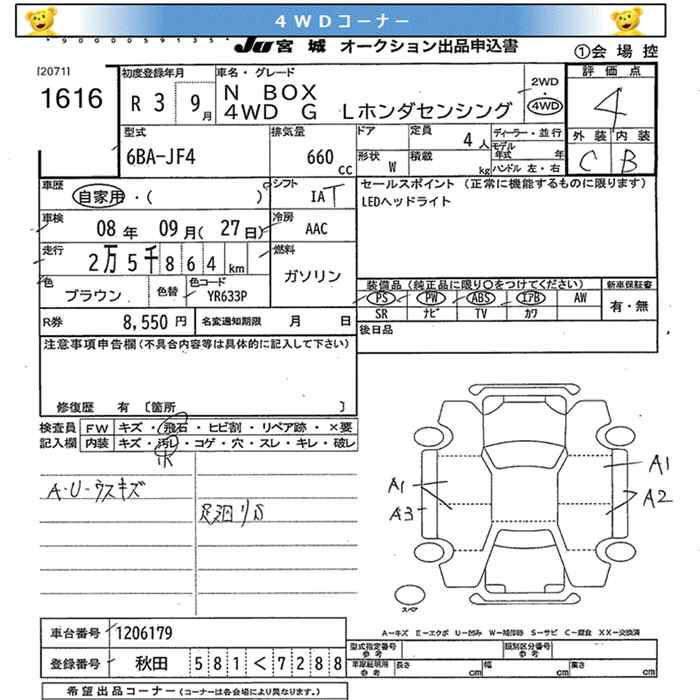 4WDコーナー
*9000059135*
JU 宮城 オークション出品申込書
①会場控
[2071]
1616
初度登録年月
R 3 9月
車名・グレード
N BOX
4WD G Lホンダセンシング
2WD
・
4WD
評価点
4
外装 内装
C B
型式
6BA-JF4
排気量
660 cc
ドア
定員 4人
ディーラー・並行
モデル年式 年
形状 W
積載 kg
ハンドル 左・右
車歴
自家用・( )
シフト
IAT
セールスポイント (正常に機能するものに限ります)
LEDヘッドライト
車検
08年 09月(27日)
冷房
AAC
走行
2万5千864km
燃料
ガソリン
色
ブラウン
色替
色コード
YR633P
装備品(純正品に限り○をつけてください)
新車保証書
PS PW ABS エアB AW
SR ナビ TV カワ
有・無
R券 8,550円
名変通知期限 月 日
後日品
注意事項申告欄(不具合内容等は具体的に記入して下さい)
修復歴 有 〔箇所 〕
検査員記入欄
FW キズ・飛石・ヒビ割・リペア跡・×要
内装 キズ・汚レ・コゲ・穴・スレ・キレ・破レ
A-U-ウスキズ
足廻りS
A1
A3
A1
A2
スペア
A―キズ E―エクボ U―凹み W―補修跡 S―サビ C―腐食 XX―交換済
車台番号 1206179
登録番号 秋田 581<7288
型式指定番号 参考
類別区分番号 参考
車庫証明用 参考
長さ cm
幅 cm
高さ cm
希望出品コーナー(コーナーは各会場により異なります。)